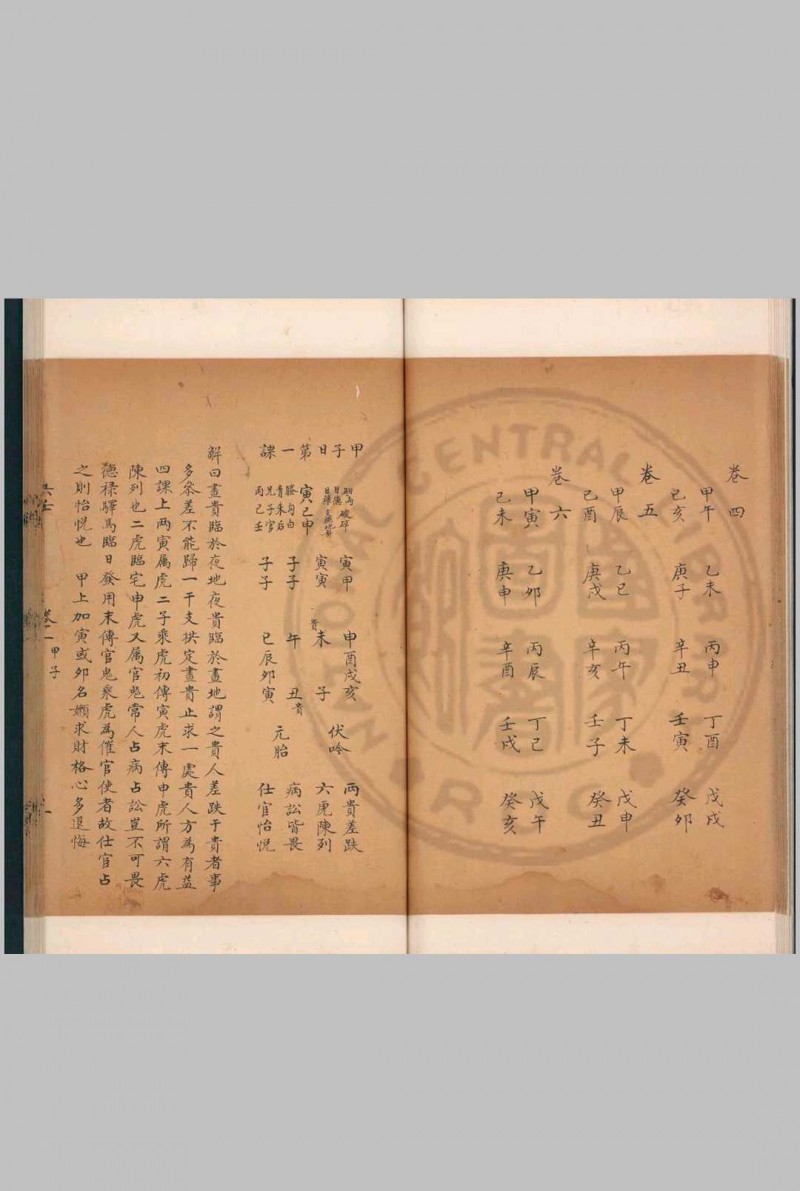 卷四
甲午 乙未 丙申 丁酉 戊戌
己亥 庚子 辛丑 壬寅 癸卯
卷五
甲辰 乙巳 丙午 丁未 戊申
己酉 庚戌 辛亥 壬子 癸丑
卷六
甲寅 乙卯 丙辰 丁巳 戊午
己未 庚申 辛酉 壬戌 癸亥
甲子日第一課
破碎 寅甲 申酉戌亥 兩貴差跌
日德 日祿 寅寅 貴未 子 伏吟 六虎陳列
寅巳申 子子 午 丑貴 元胎 病訟皆畏
螣勾白 子子 巳辰卯寅 仕官怡悅
青朱后
兄子官
丙己壬
解曰晝貴臨於夜地夜貴臨於晝地謂之貴人差跌干貴者事
多參差不能歸一干支拱定晝貴止求一處貴人方為有益
四課上兩寅屬虎二子乘虎初傳寅虎末傳申虎所謂六虎
陳列也二虎臨宅申虎又屬官鬼常人占病占訟豈不可畏
德祿驛馬臨日發用末傳官鬼乘虎為催官使者故仕官占
之則怡悅也 甲上加寅或卯名嬾求財格心多退悔
六壬 卷一 甲子 一
NATIONAL CENTRAL LIBRARY R.O.C.
國家圖書館